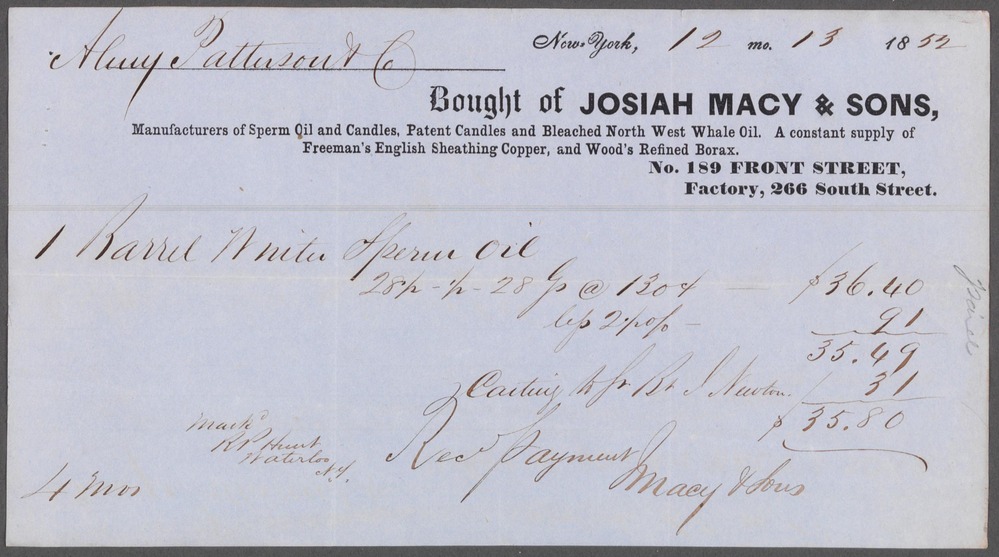 Almy Patterson & Co
New-York, 12 mo. 13 1852
Bought of JOSIAH MACY & SONS,
Manufacturers of Sperm Oil and Candles, Patent Candles and Bleached North West Whale Oil. A constant supply of
Freeman's English Sheathing Copper, and Wood's Refined Borax.
No. 189 FRONT STREET,
Factory, 266 South Street.
1 Barrel Winter Sperm Oil
28½ - ½ - 28 Gs @ 130¢ — $36.40
less 2½ o/o — 91
35.49
Carting to Str Newton 31
$35.80
Mark'd
R P Hunt
Waterloo
N.Y.
Rec'd Payment
Macy & Sons
4 mos
paid